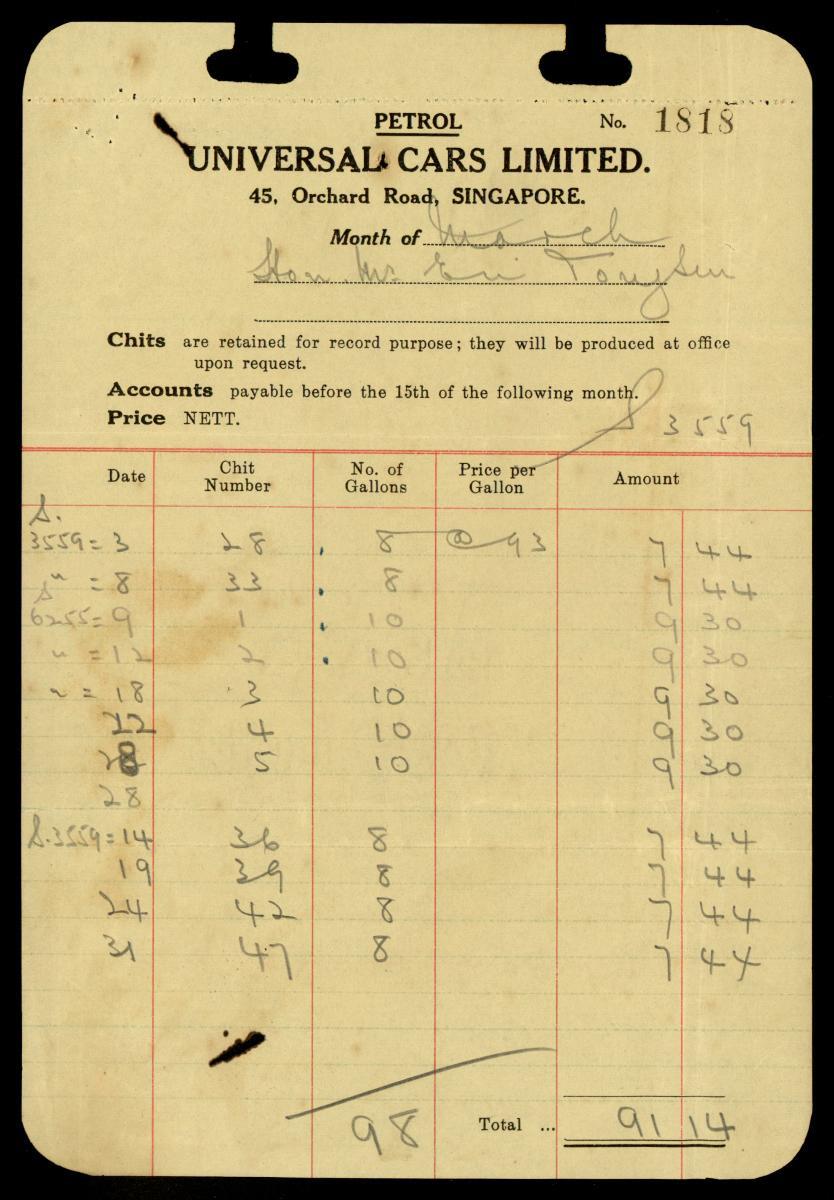 PETROL No. 1818
UNIVERSAL CARS LIMITED.
45, Orchard Road, SINGAPORE.
Month of March
Hon. Mr.
Chits are retained for record purpose; they will be produced at office
upon request.
Accounts payable before the 15th of the following month.
Price NETT.
S 3559
Date Chit Number No. of Gallons Price per Gallon Amount
S.
3559 = 3 28 8 @ 93 7 44
S " = 8 33 8 7 44
6255 = 9 1 10 9 30
" = 12 2 10 9 30
" = 18 3 10 9 30
22 4 10 9 30
28 5 10 9 30
28
S. 3559 = 14 36 8 7 44
19 39 8 7 44
24 42 8 7 44
31 47 8 7 44
98 Total ... 91 14